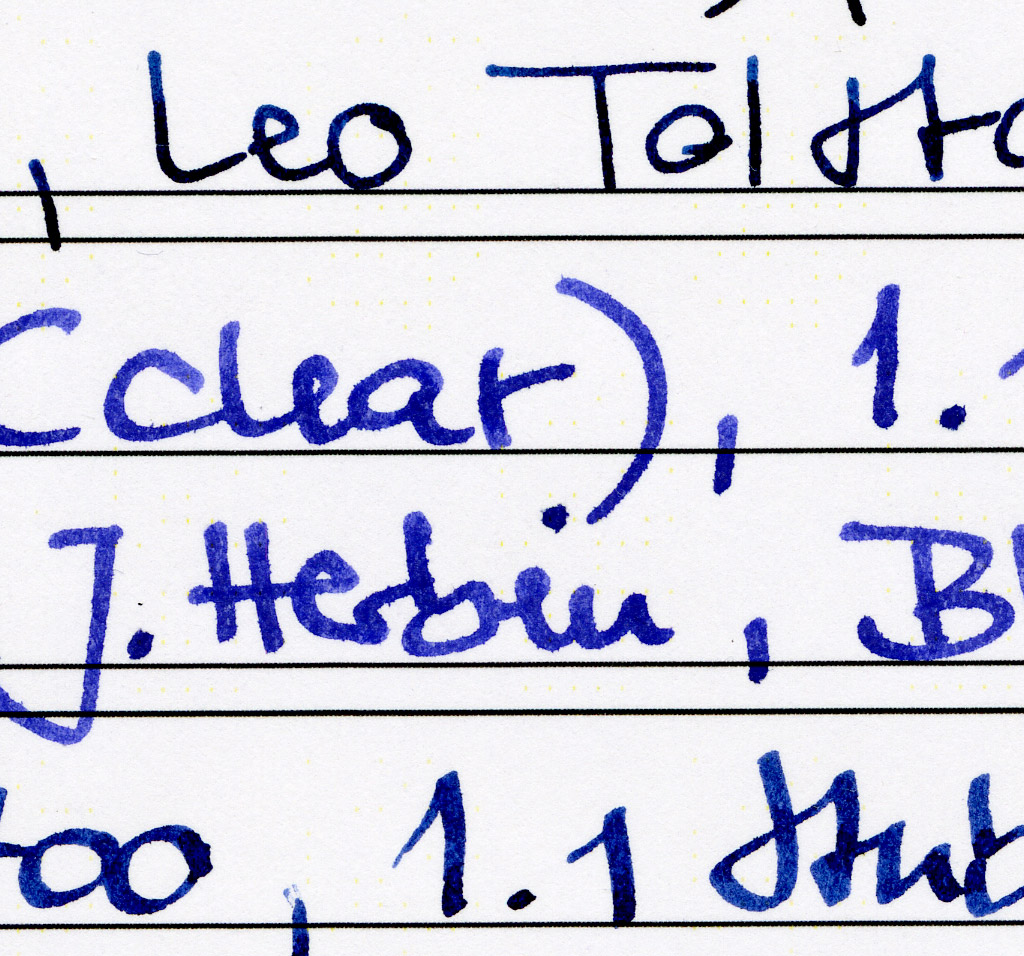 , Leo Tolsto
(clear), 1.
J. Herbin, Bl
too, 1.1 Stub